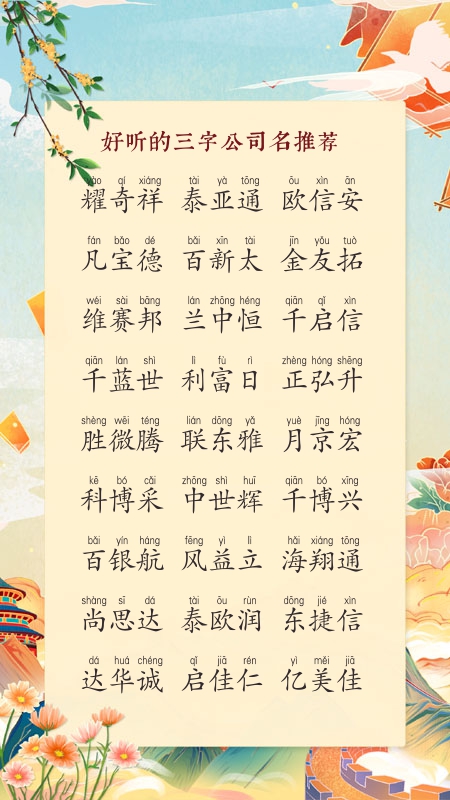 好听的三字公司名推荐
yào qí xiáng tài yà tōng ōu xìn ān
耀奇祥 泰亚通 欧信安
fán bǎo dé bǎi xīn tài jīn yǒu tuò
凡宝德 百新太 金友拓
wéi sài bāng lán zhōng héng qiān qǐ xìn
维赛邦 兰中恒 千启信
qiān lán shì lì fù rì zhèng hóng shēng
千蓝世 利富日 正弘升
shèng wēi téng lián dōng yǎ yuè jīng hóng
胜微腾 联东雅 月京宏
kē bó cǎi zhōng shì huī qiān bó xīng
科博采 中世辉 千博兴
bǎi yín háng fēng yì lì hǎi xiáng tōng
百银航 风益立 海翔通
shàng sī dá tài ōu rùn dōng jié xìn
尚思达 泰欧润 东捷信
dá huá chéng qǐ jiā rén yì měi jiā
达华诚 启佳仁 亿美佳